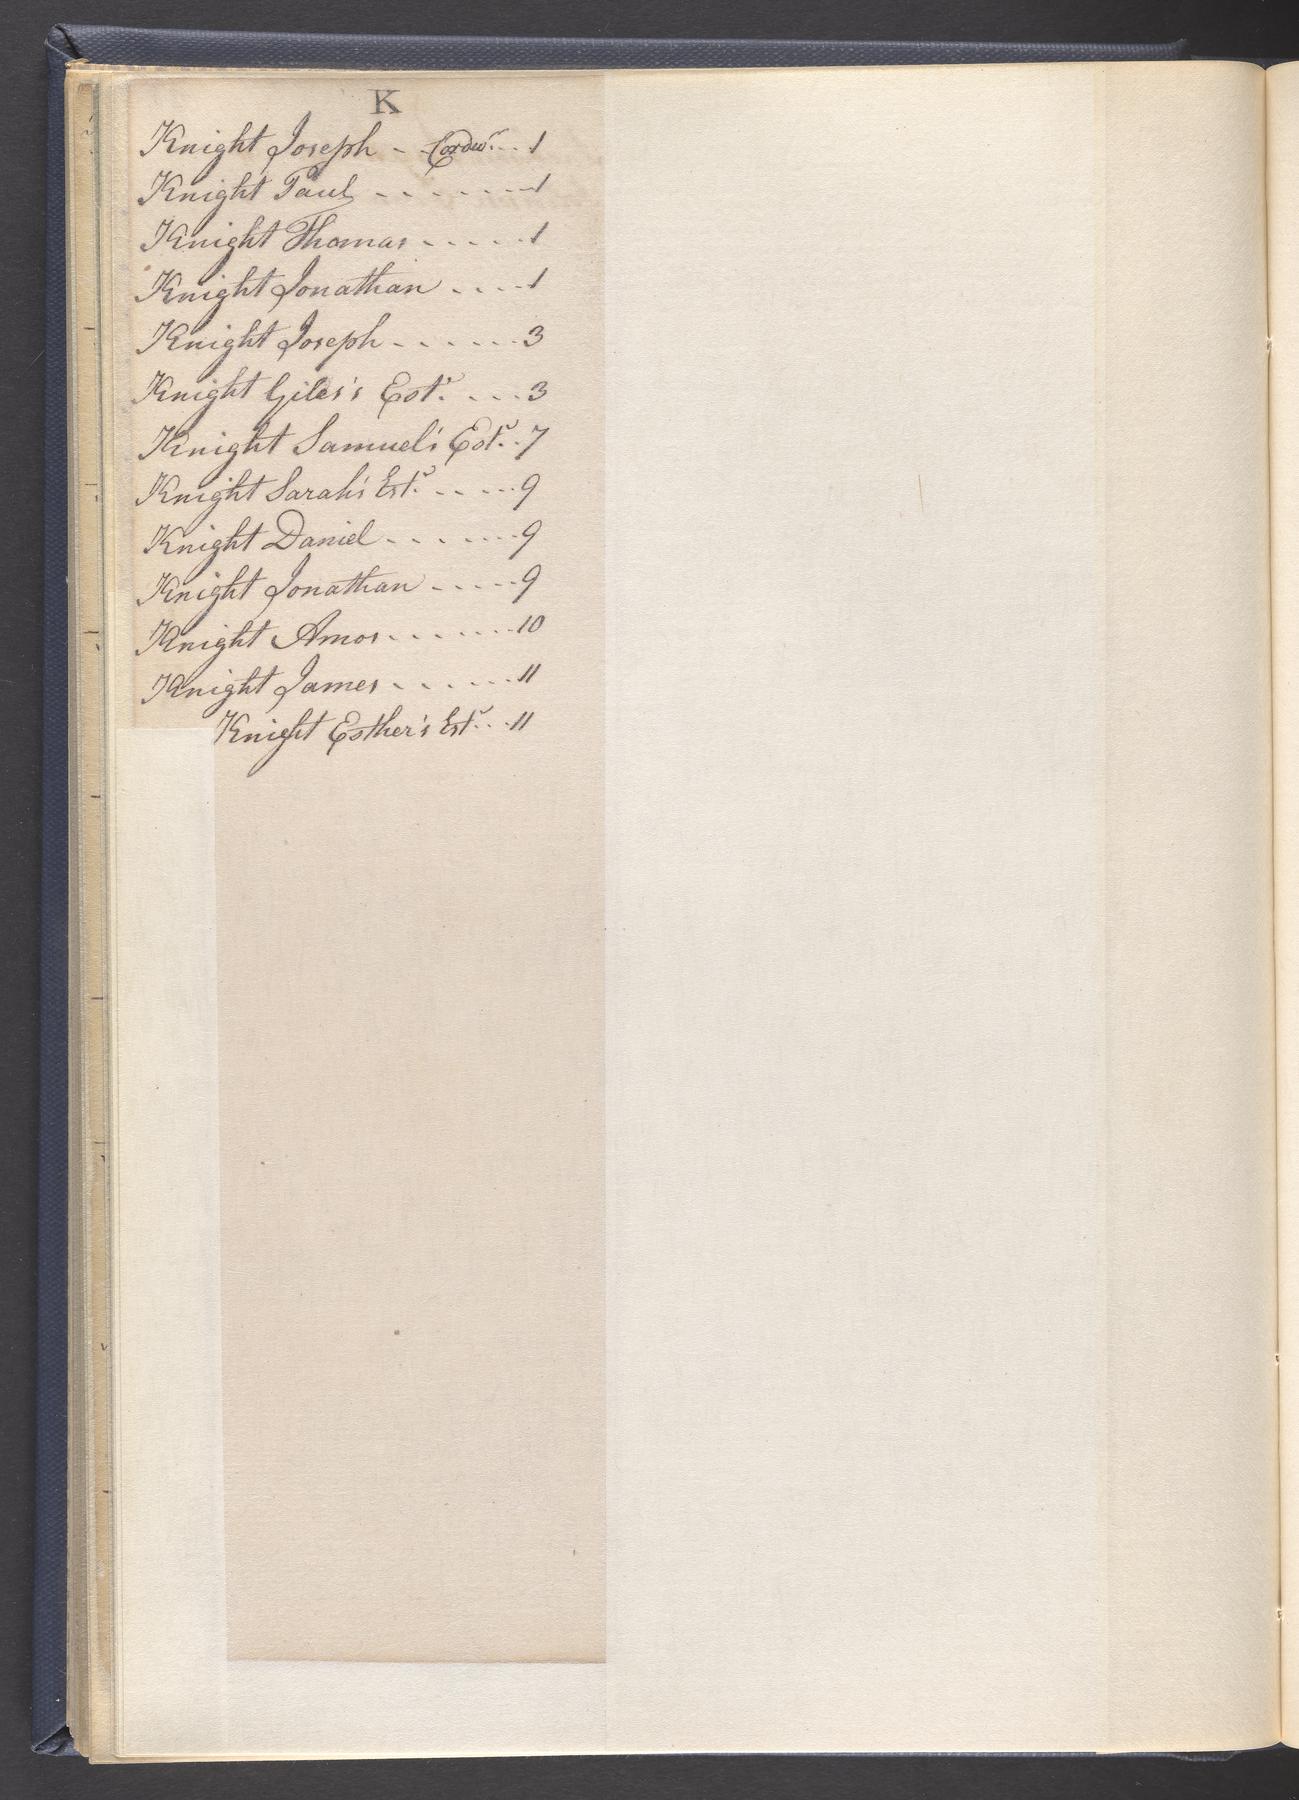 K
Knight Joseph - Cordwr. .. 1
Knight Paul - - - - - - - 1
Knight Thomas - - - - - 1
Knight Jonathan - - - - 1
Knight Joseph - - - - - - 3
Knight Giles's Estr. - - - 3
Knight Samuel's Estr. . 7
Knight Sarah's Estr. - - - - 9
Knight Daniel - - - - - - 9
Knight Jonathan - - - - - 9
Knight Amos - - - - - - - 10
Knight James - - - - - - 11
Knight Esther's Estr. . . 11